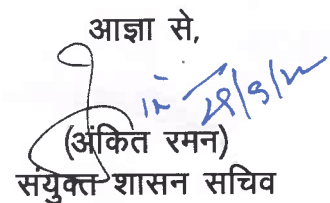 आज्ञा से,
(अंकित रमन)
संयुक्त शासन सचिव